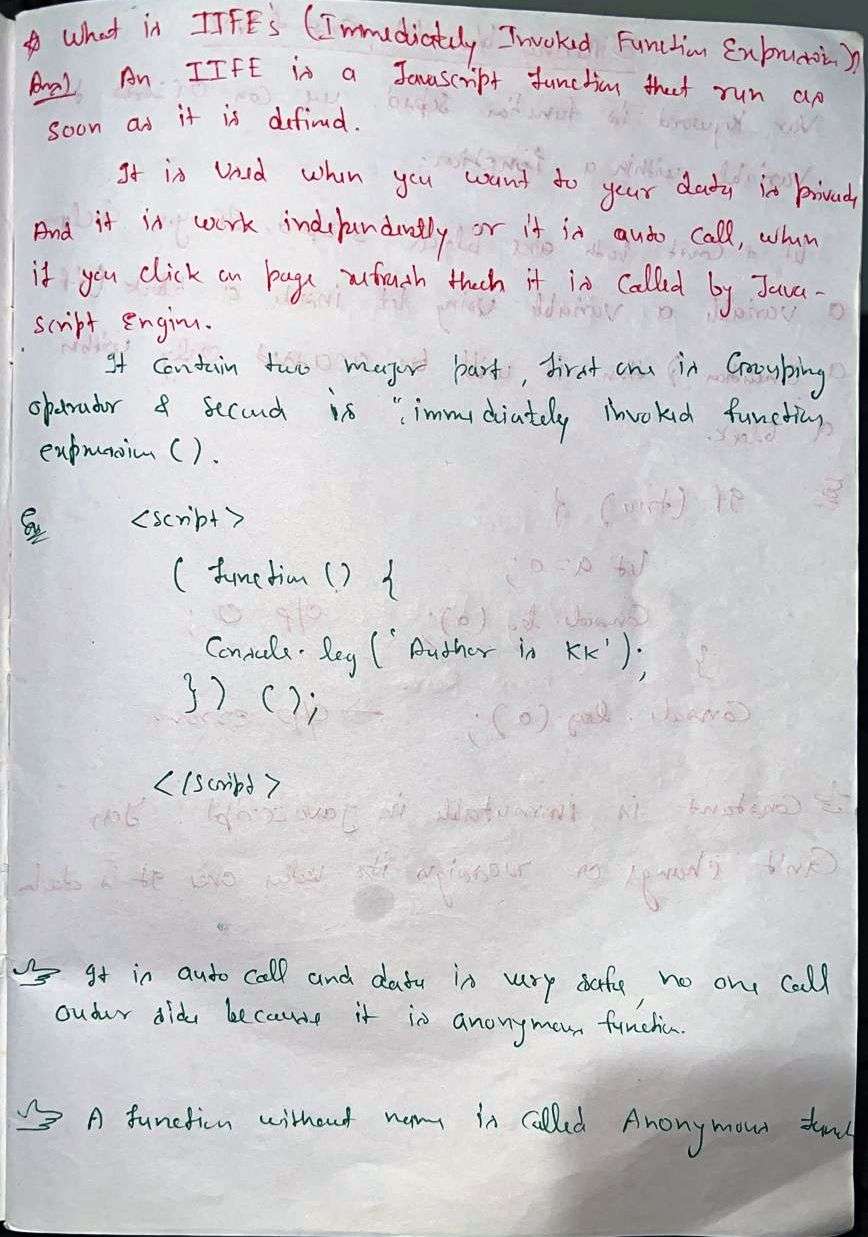 * What is IIFE's (Immediately Invoked Function Expression)
Ans) An IIFE is a Javascript function that run as
soon as it is defined.
It is used when you want to your data is private
And it is work independently or it is auto call, when
if you click on page refresh then it is called by Java-
script Engine.
It contain two major part, first one is Grouping
operator & second is "immediately invoked function
expression ().
Ex <script>
( function () {
Console.log ('Author is KK');
}) ();
</script>
It is auto call and data is very safe, no one call
outer side because it is anonymous function.
A function without name is called Anonymous